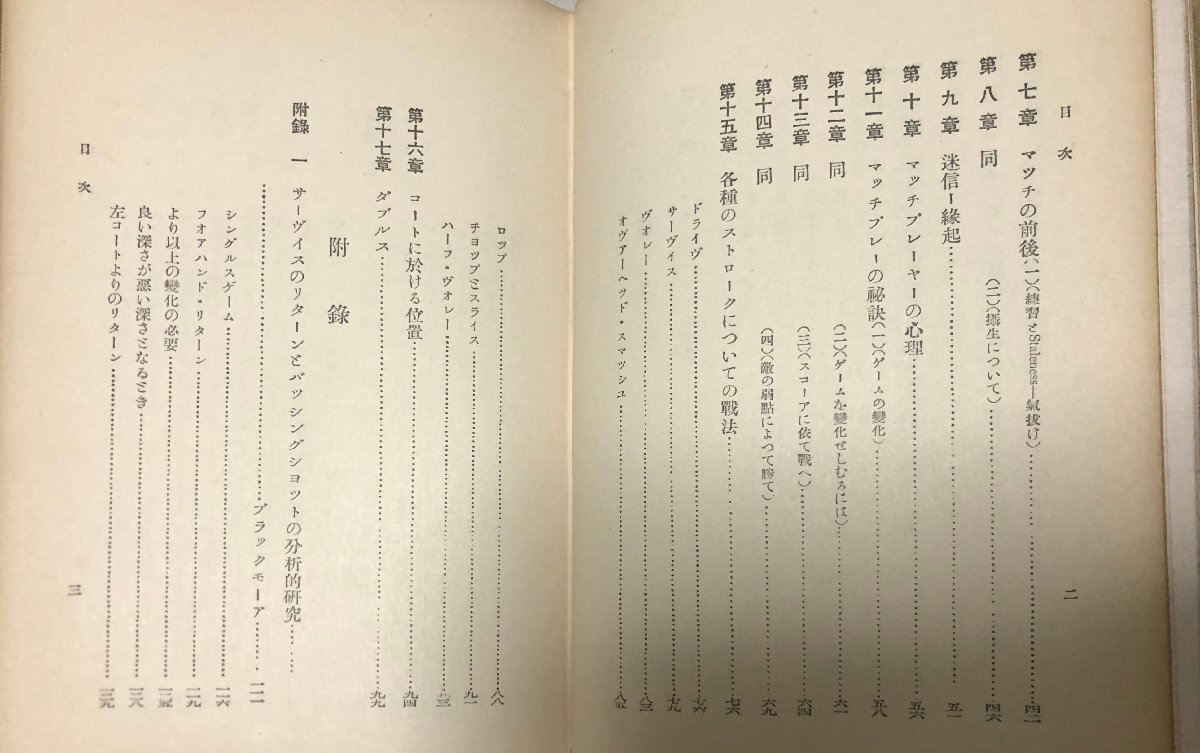 目次
第七章 マッチの前後(一)(練習とStaleness—氣拔け)……四二
第八章 同 (二)(攝生について)……四六
第九章 迷信—緣起……五一
第十章 マッチプレーヤーの心理……五六
第十一章 マッチプレーの秘訣(一)(ゲームの變化)……五八
第十二章 同 (二)(ゲームを變化せしむるには)……六一
第十三章 同 (三)(スコーアに依て戰へ)……六四
第十四章 同 (四)(敵の弱點によつて勝て)……六九
第十五章 各種のストロークについての戰法……七六
ドライヴ……七六
サーヴィス……七九
ヴオレー……八三
オヴアーヘッド・スマッシユ……八五
二
ロッブ……八八
チョップとスライス……九一
ハーフ・ヴオレー……九三
第十六章 コートに於ける位置……九四
第十七章 ダブルス……九九
附錄
附錄 一 サーヴイスのリターンとパッシングショットの分析的研究……
……ブラックモーア……一一一
シングルスゲーム……一一六
フオアハンド・リターン……一二九
より以上の變化の必要……一三五
良い深さが悪い深さとなるとき……一三八
左コートよりのリターン……一三九
目次
三